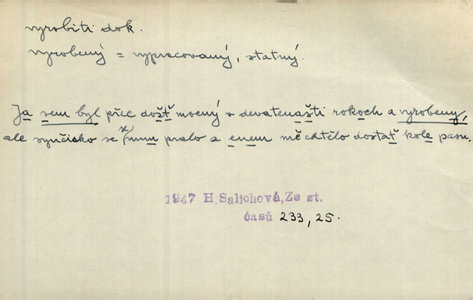 vyrobiti dok.
vyrobený = vypracovaný, statný.
Ja sem byl přec došť mocný v devatenašti rokoch a vyrobeny,
ale synčisko se mnum pralo a enem mě chtělo dostať kole pasu.
1947 H. Salichová, Ze st.
časů 233, 25.